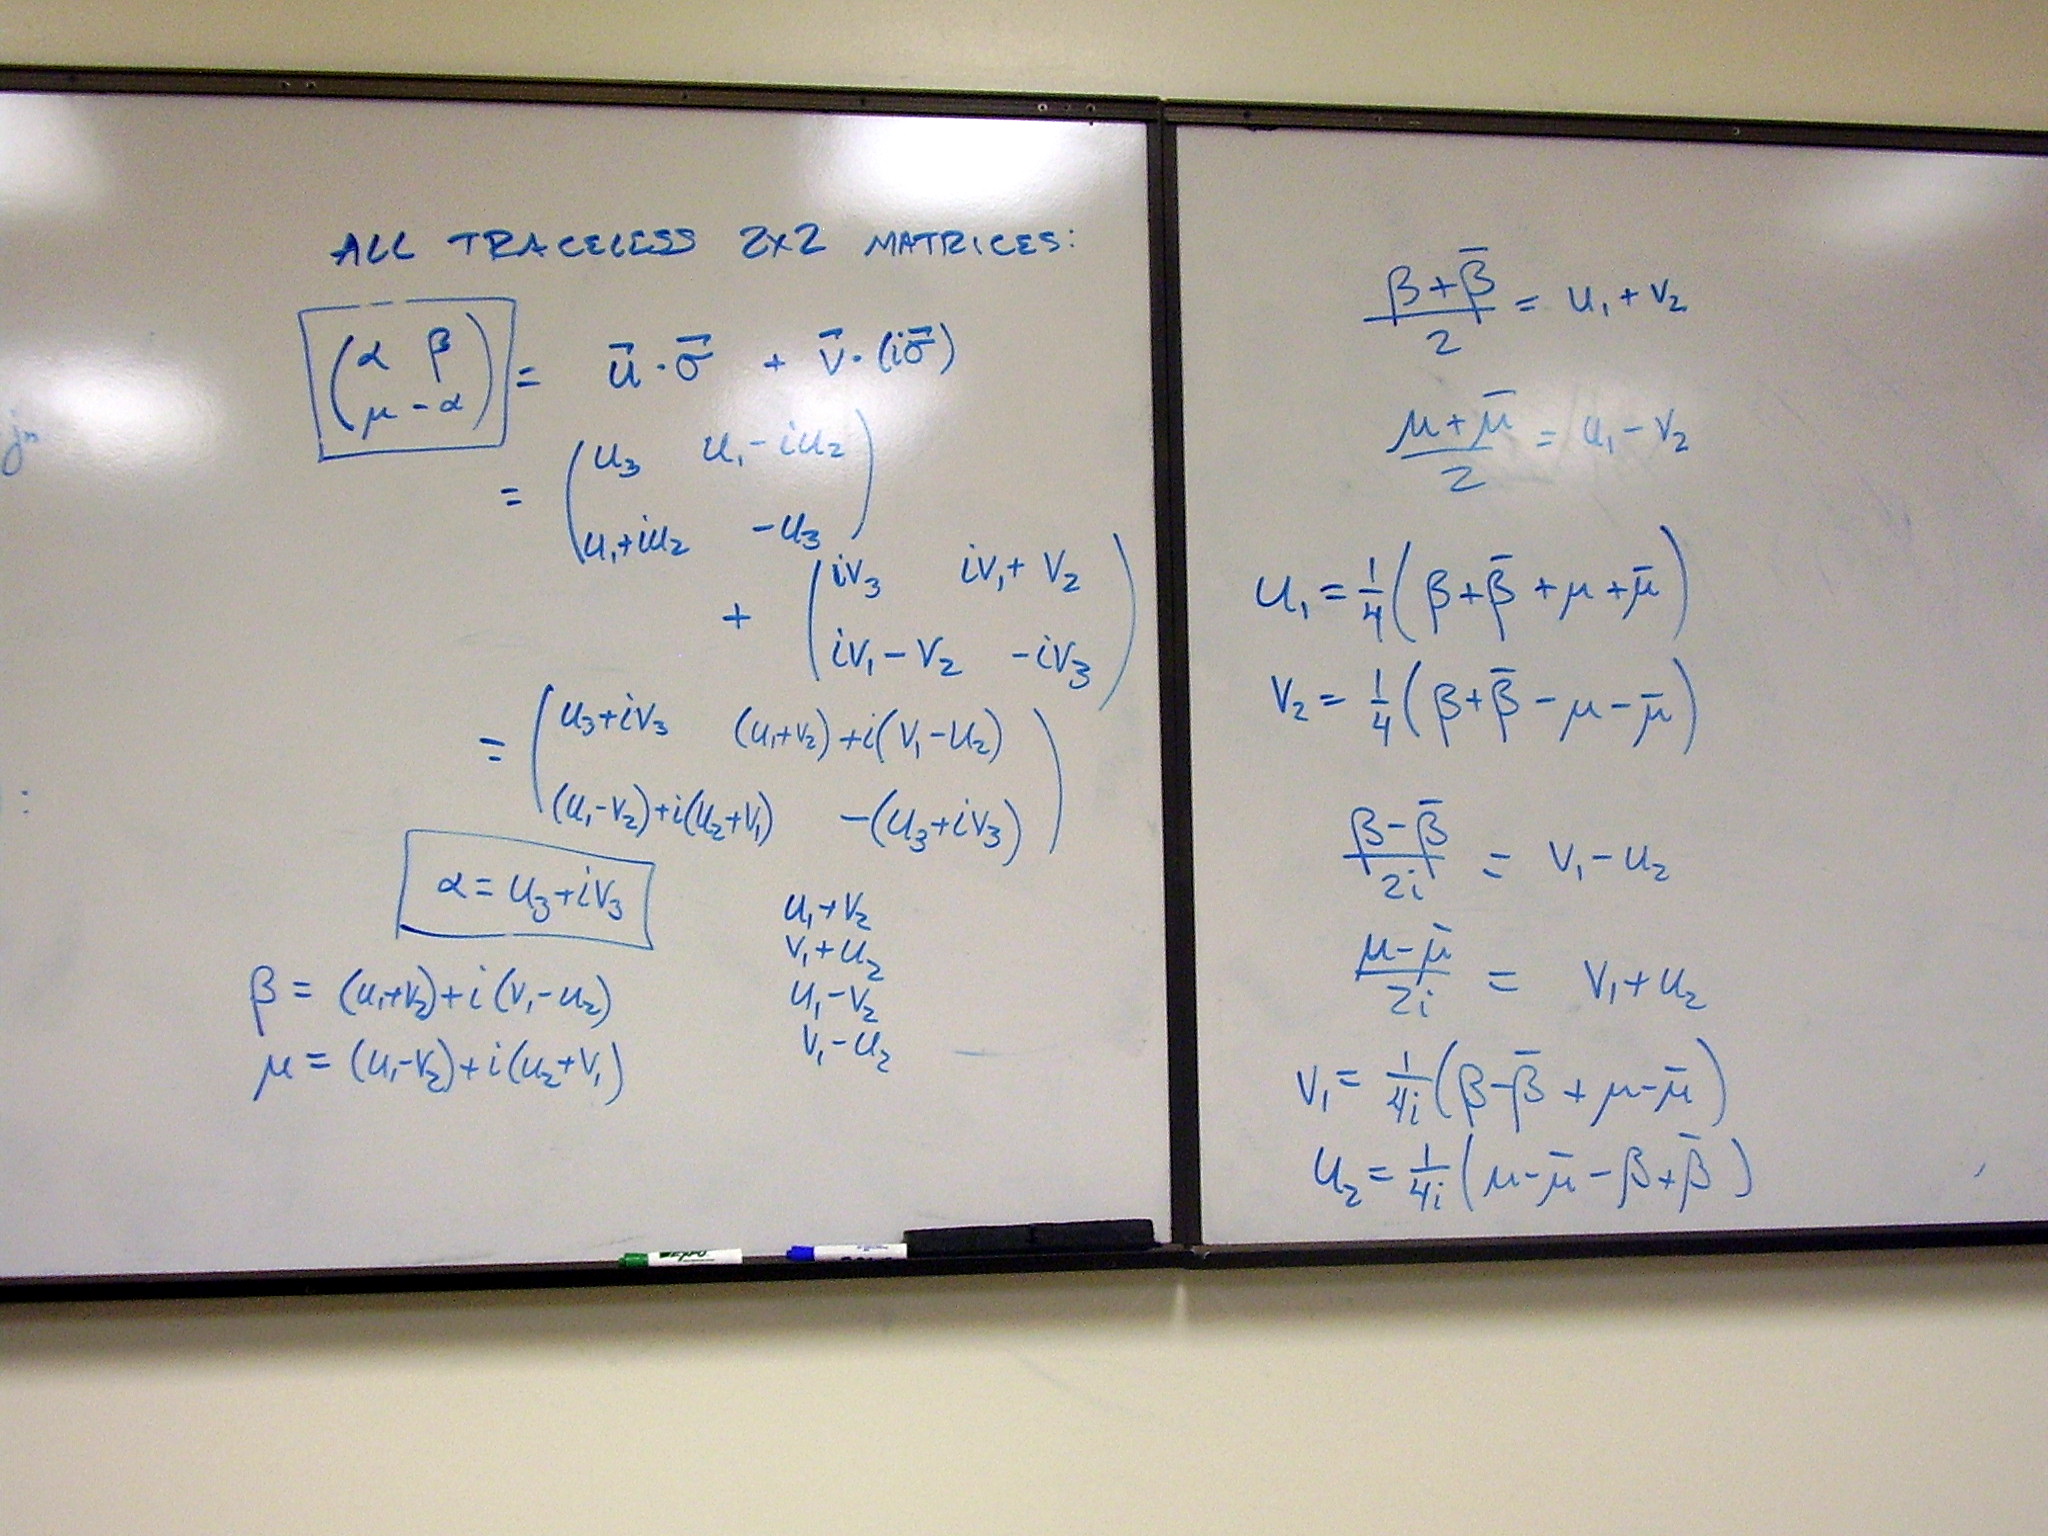 ALL TRACELESS 2x2 MATRICES:
(α β
μ -α) = u⃗·σ⃗ + v⃗·(iσ⃗)
= (u₃ u₁-iu₂
u₁+iu₂ -u₃)
+ (iv₃ iv₁+v₂
iv₁-v₂ -iv₃)
= (u₃+iv₃ (u₁+v₂)+i(v₁-u₂)
(u₁-v₂)+i(u₂+v₁) -(u₃+iv₃))
α = u₃+iv₃
β = (u₁+v₂)+i(v₁-u₂)
μ = (u₁-v₂)+i(u₂+v₁)
u₁+v₂
v₁+u₂
u₁-v₂
v₁-u₂
(β+β̄)/2 = u₁+v₂
(μ+μ̄)/2 = u₁-v₂
u₁ = 1/4(β+β̄+μ+μ̄)
v₂ = 1/4(β+β̄-μ-μ̄)
(β-β̄)/2i = v₁-u₂
(μ-μ̄)/2i = v₁+u₂
v₁ = 1/4i(β-β̄+μ-μ̄)
u₂ = 1/4i(μ-μ̄-β+β̄)